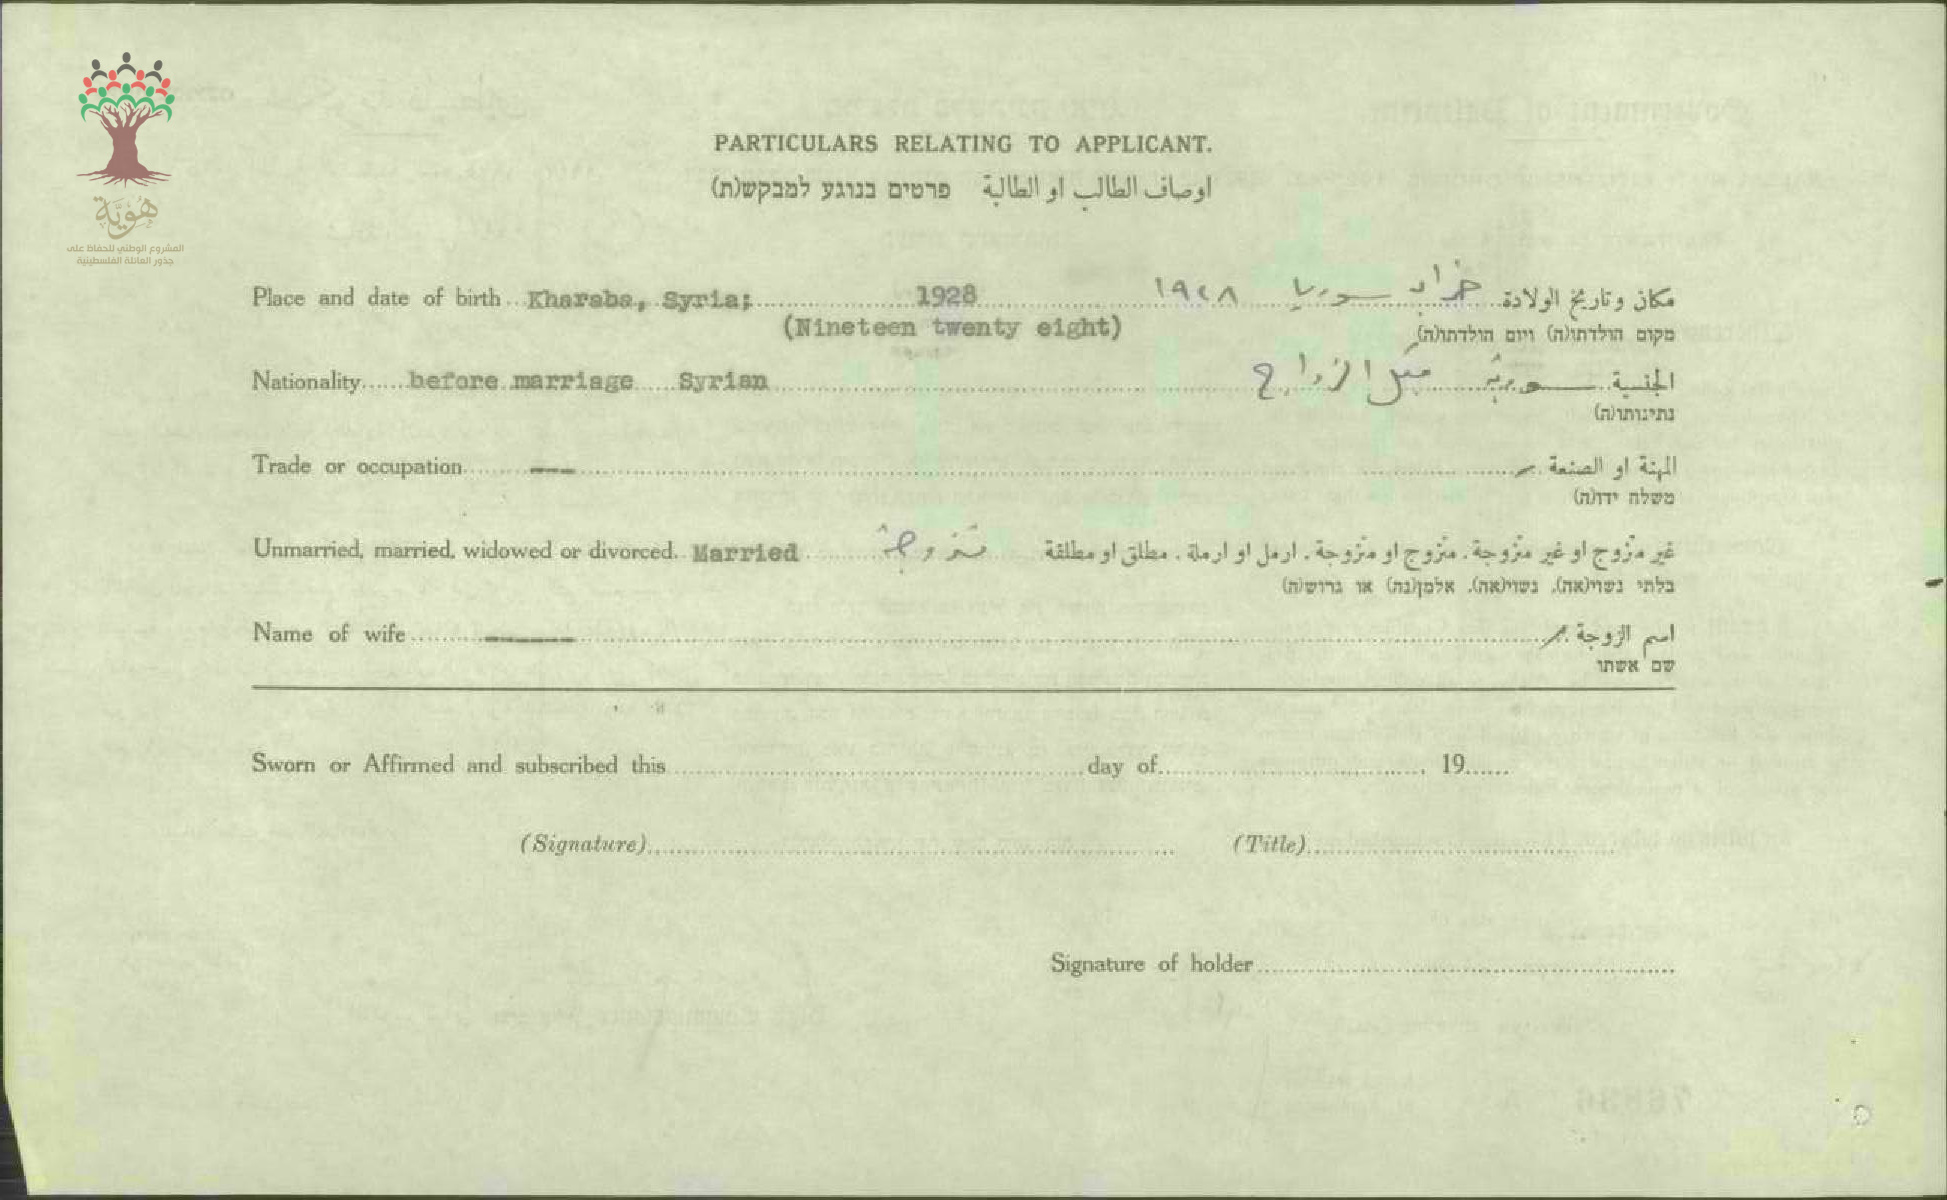 هُوِيَّة
المشروع الوطني للحفاظ على
جذور العائلة الفلسطينية
PARTICULARS RELATING TO APPLICANT.
اوصاف الطالب او الطالبة פרטים בנוגע למבקש(ת)
Place and date of birth Kharaba, Syria; 1928 ١٩٢٨ سوريا خراب مكان وتاريخ الولادة
(Nineteen twenty eight) מקום הולדתו(ה) ויום הולדתו(ה)
Nationality before marriage Syrian الجنسية سورية قبل الزواج
נתינותו(ה)
Trade or occupation — المهنة او الصنعة
משלח ידו(ה)
Unmarried, married, widowed or divorced. Married متزوجة غير متزوج او غير متزوجة. متزوج او متزوجة. ارمل او ارملة. مطلق او مطلقة
בלתי נשוי(אה), נשוי(אה), אלמן(נה) או גרוש(ה)
Name of wife — اسم الزوجة
שם אשתו
Sworn or Affirmed and subscribed this day of 19
(Signature) (Title)
Signature of holder